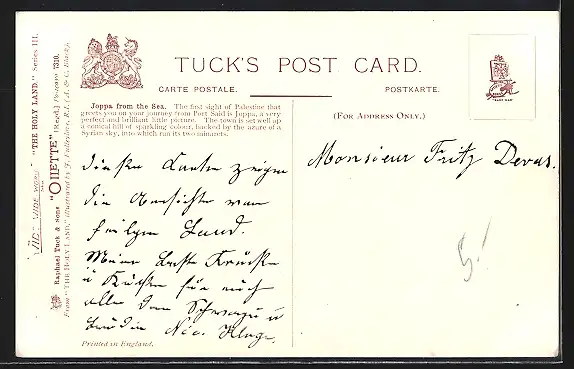 TUCK'S POST CARD.
CARTE POSTALE. POSTKARTE.
Joppa from the Sea. The first sight of Palestine that
greets you on your journey from Port Said is Joppa, a very
perfect and brilliant little picture. The town is set well up
a conical hill of sparkling colour, backed by the azure of a
Syrian sky, into which run its two minarets.
(FOR ADDRESS ONLY.)
"THE HOLY LAND." Series III.
Raphael Tuck & Sons "OILETTE" [Regd.] Postcard 7310.
From "THE HOLY LAND," illustrated by J. Fulleylove, R.I. (A. & C. Black).
Diese Karten zeigen
die Ansichte vom
heilgen Land.
Meine
u für euch
alle dem u
Monsieur Fritz Devas.
Printed in England.